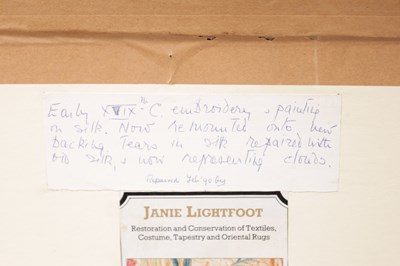 Early XVIX th C. embroidery & painting
on silk. Now remounted onto new
backing. Tears in silk repaired with
old silk, & now representing clouds.
JANIE LIGHTFOOT
Restoration and Conservation of Textiles,
Costume, Tapestry and Oriental Rugs